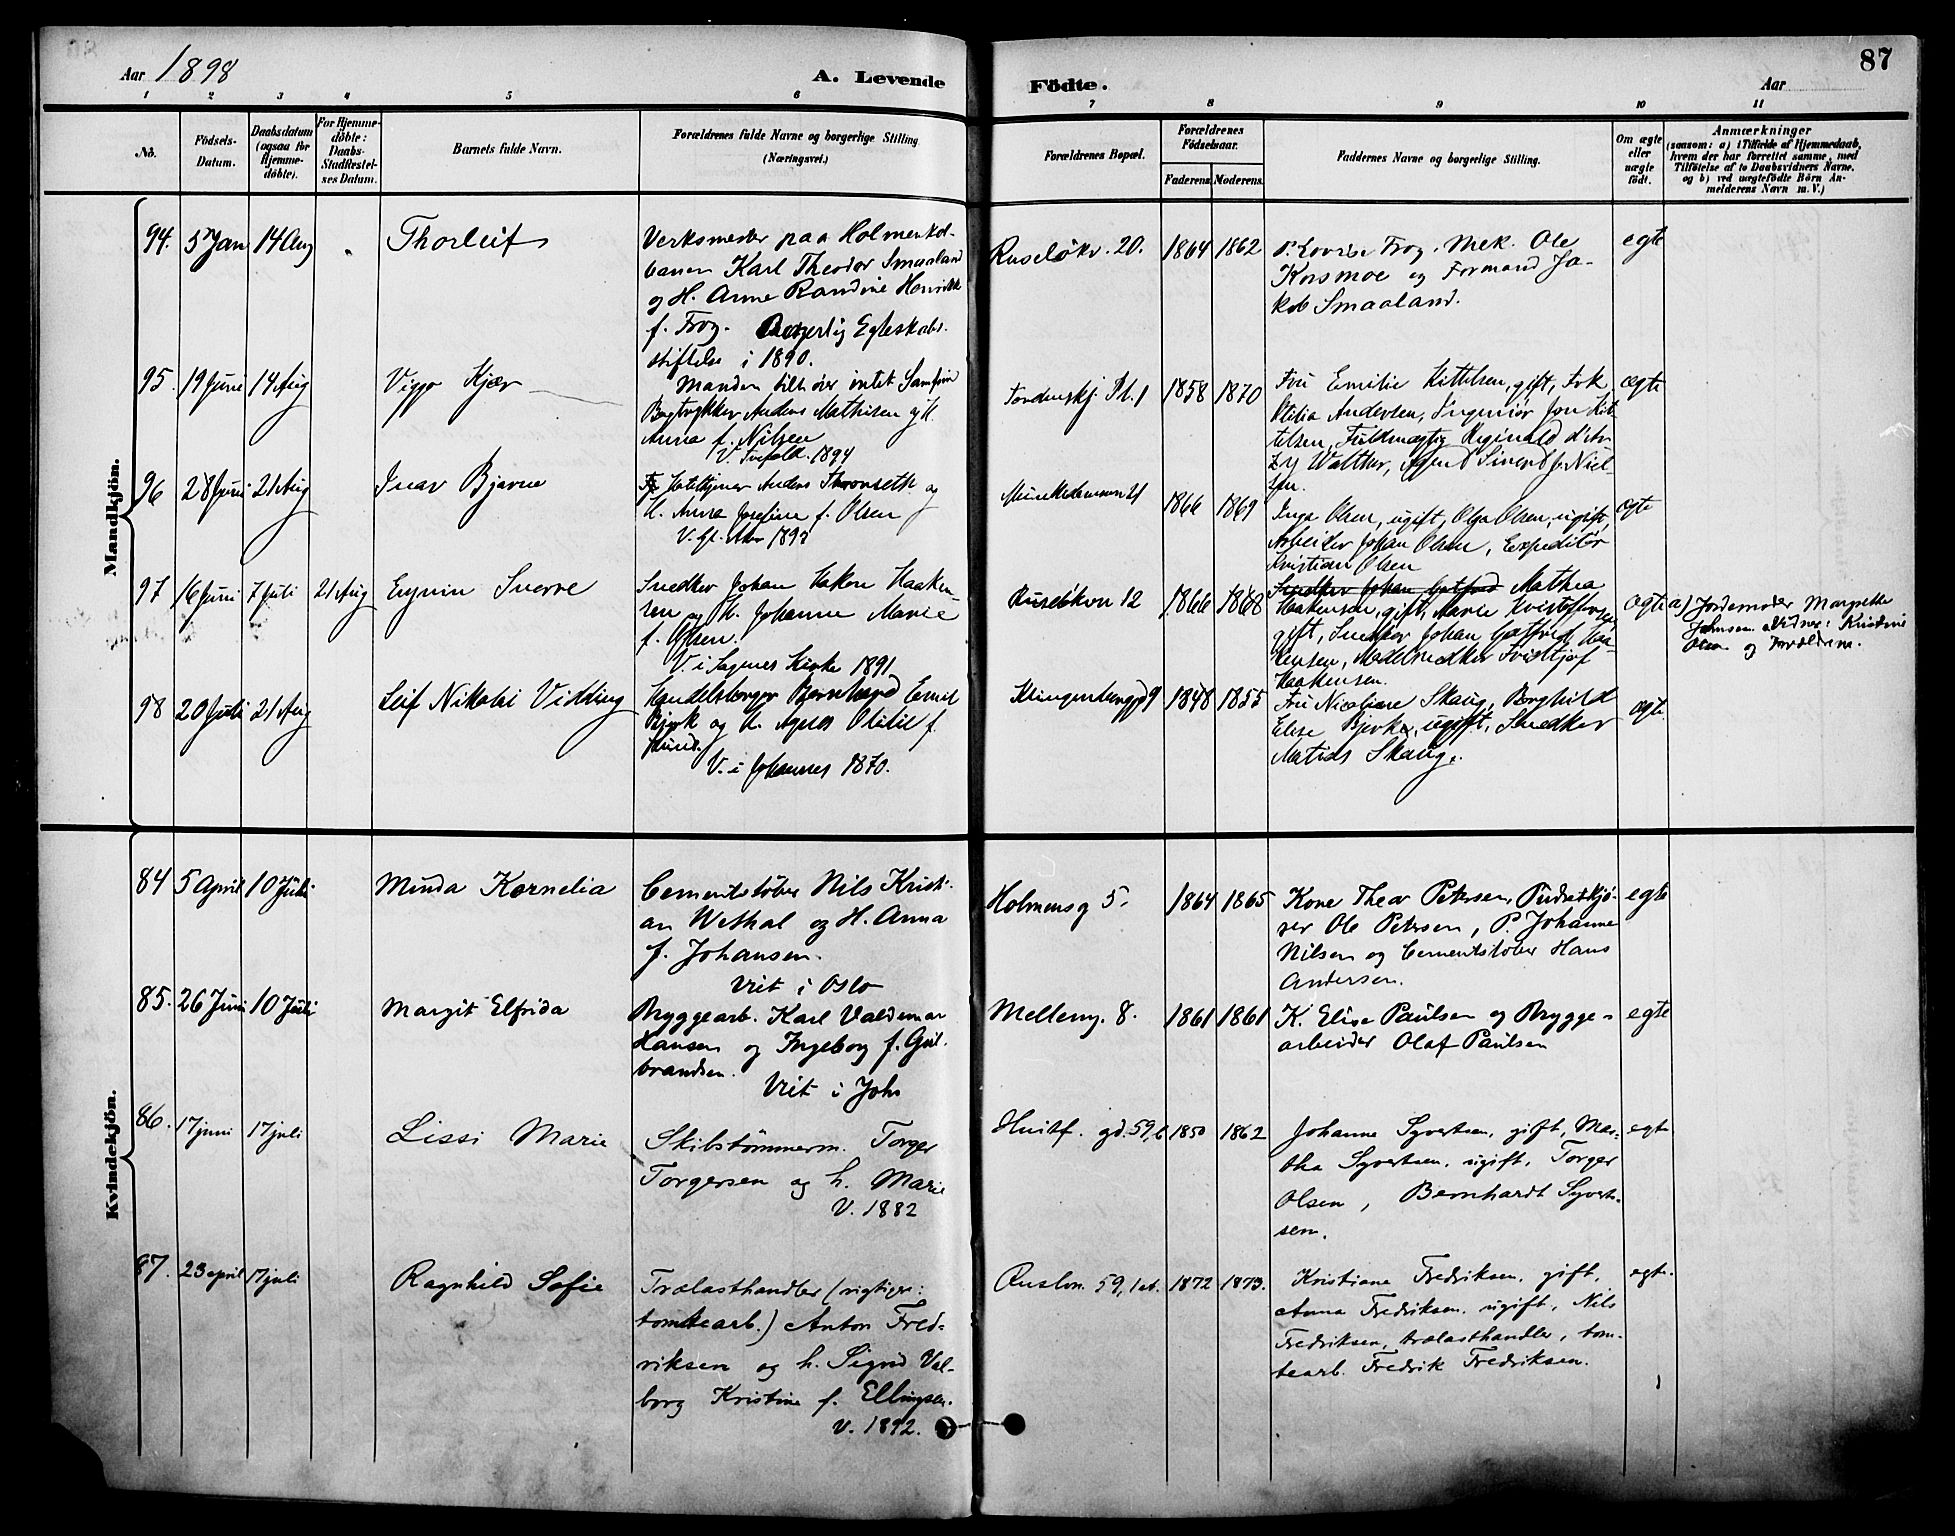 Aar 1898
A. Levende
Födte.
Aar
87
1 2 3 4 5 6 7 8 9 10 11
No.
Födsels-
Datum.
Daabsdatum
(ogsaa for
Hjemme-
döbte).
For Hjemme-
döbte:
Daabs-
Stadfæstel-
ses Datum.
Barnets fulde Navn.
Forældrenes fulde Navne og borgerlige Stilling
(Næringsvei.)
Forældrenes Bopæl.
Forældrenes
Födselsaar.
Faderens. Moderens.
Faddernes Navne og borgerlige Stilling.
Om ægte
eller
uægte
födt.
Anmærkninger
(saasom: a) i Tilfælde af Hjemmedaab,
hvem der har forrettet samme, med
Tilföielse af to Daabsvidners Navne,
og b) ved uægtefödte Börn An-
melderens Navn m. V.)
Mandkjön.
94. 5 Jan 14 Aug
Thorleif
Verksmester paa Holmenkol-
banen Karl Theodor Smaaland
og H. Anne Randine Henrikke
f. Frog. Borgerlig Egteskabs-
stiftelse i 1890.
Ruseløkv. 20.
1864 1862
Lovise Frog. Mek. Ole
Korsmoe og Formand Ja-
kob Smaaland.
egte
95. 19 Juni 14 Aug
Viggo Kjær
Manden tilhører intet Samfund
Bogtrykker Anders Mathisen og H.
Anna f. Nilsen
V. Trefold. 1894
Tordenskj. Pl. 1
1858 1870
Fru Emilie Kittelsen, gift, Frk.
Otilia Andersen, Ingeniør Jon Kit-
telsen, Fuldmægtig Reginald d'Au-
Walther, Agent Niel-
sen.
ægte
96 28 Juni 21 Aug
Inar Bjarne
Hotelkjener Anders Thronseth og
H. Anna Josefine f. Olsen
V. Gl. Aker 1892
Munkedamsv 21
1866 1869
Inga Olsen, ugift, Olga Olsen, ugift,
Arbeider Johan Olsen, Expeditør
Kristian Olsen
ægte
97 16 Juni 7 Juli 21 Aug
Eyvin Sverre
Snedker Johan Hakon Haaken-
sen og H. Johanne Marie
f. Olsen.
V. i Sagenes Kirke 1891
Ruseløkvn 12
1866 1868
Snedker Johan Gotfred Mathea
Haakensen, gift, Marie Kristoffersen,
gift, Snedker Johan Gotfred Haa-
kensen, Modelsnedker Fridtjof
Haakensen.
ægte
a) Jordemoder Margrethe
Johnsen. Vidner: Kristine
Olsen og Forældrene.
98 20 Juli 21 Aug
Leif Nikolai Vidding
Handelsborger Bernhard Emil
Bjerk og H. Agnes Otilie f.
Hund.
V. i Johannes 1870.
Klingenberggd 9
1848 1855
Fru Nicoline Skaug, Borghild
Elise Bjerke, ugift, Snedker
Matias Skaug.
ægte
Kvindekjön.
84 5 April 10 Juli
Minda Kornelia
Cementstøber Nils Kristi-
an Wethal og H. Anna
f. Johansen.
Viet i Oslo
Holmensg 5.
1864 1865
Kone Thea Petersen, Pudretkjø-
rer Ole Petersen, P. Johanne
Nilsen og Cementstøber Hans
Andersen.
egte
85. 26 Juni 10 Juli
Margit Elfrida
Bryggearb. Karl Valdemar
Hansen og Ingeborg f. Gul-
brandsen.
Viet i Joh
Melleng. 8.
1861 1861
K. Elise Paulsen og Brygge-
arbeider Olaf Paulsen
egte
86. 17 juni 17 juli
Lissi Marie
Skibstømmerm. Torger
Torgersen og h. Marie
V. 1882
Huitf. gd. 59, 6
1850 1862
Johanne Syvertsen, gift, Mar-
tha Syvertsen, ugift, Torger
Olsen, Bernhardt Syvert-
sen.
egte
87. 23 april 17 juli
Ragnhild Sofie
Trælasthandler (rigtigere:
tomtearb.) Anton Fred-
riksen og h. Signd Val-
borg Kristine f. Ellingsen.
V. 1892.
Rusløn. 59, 1 et.
1872 1873.
Kristiane Fredriksen, gift,
Anna Fredriksen, ugift, Nils
Fredriksen, trælasthandler, tom-
tearb. Fredrik Fredriksen.
egte.